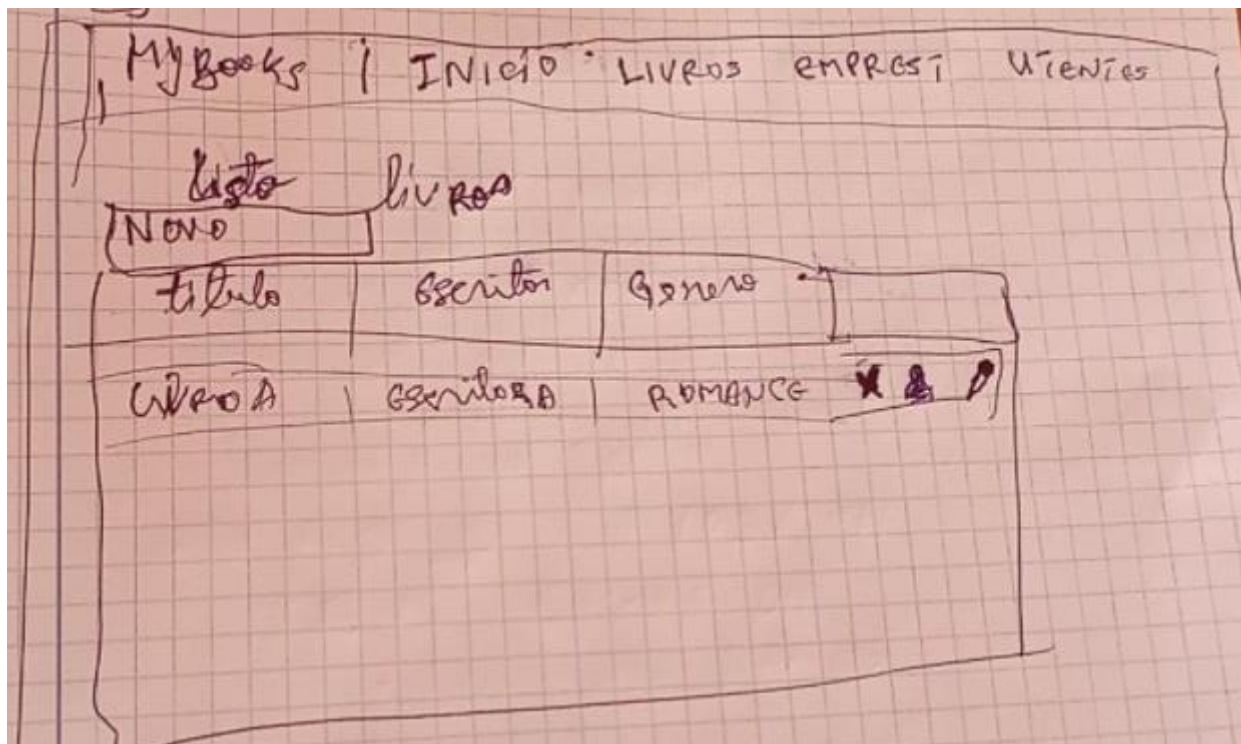 MyBooks INICIO LIVROS EMPREST UTENTES
Lista livros
NOVO
titulo Escritor Genero
LIVRO A ESCRITORA ROMANCE